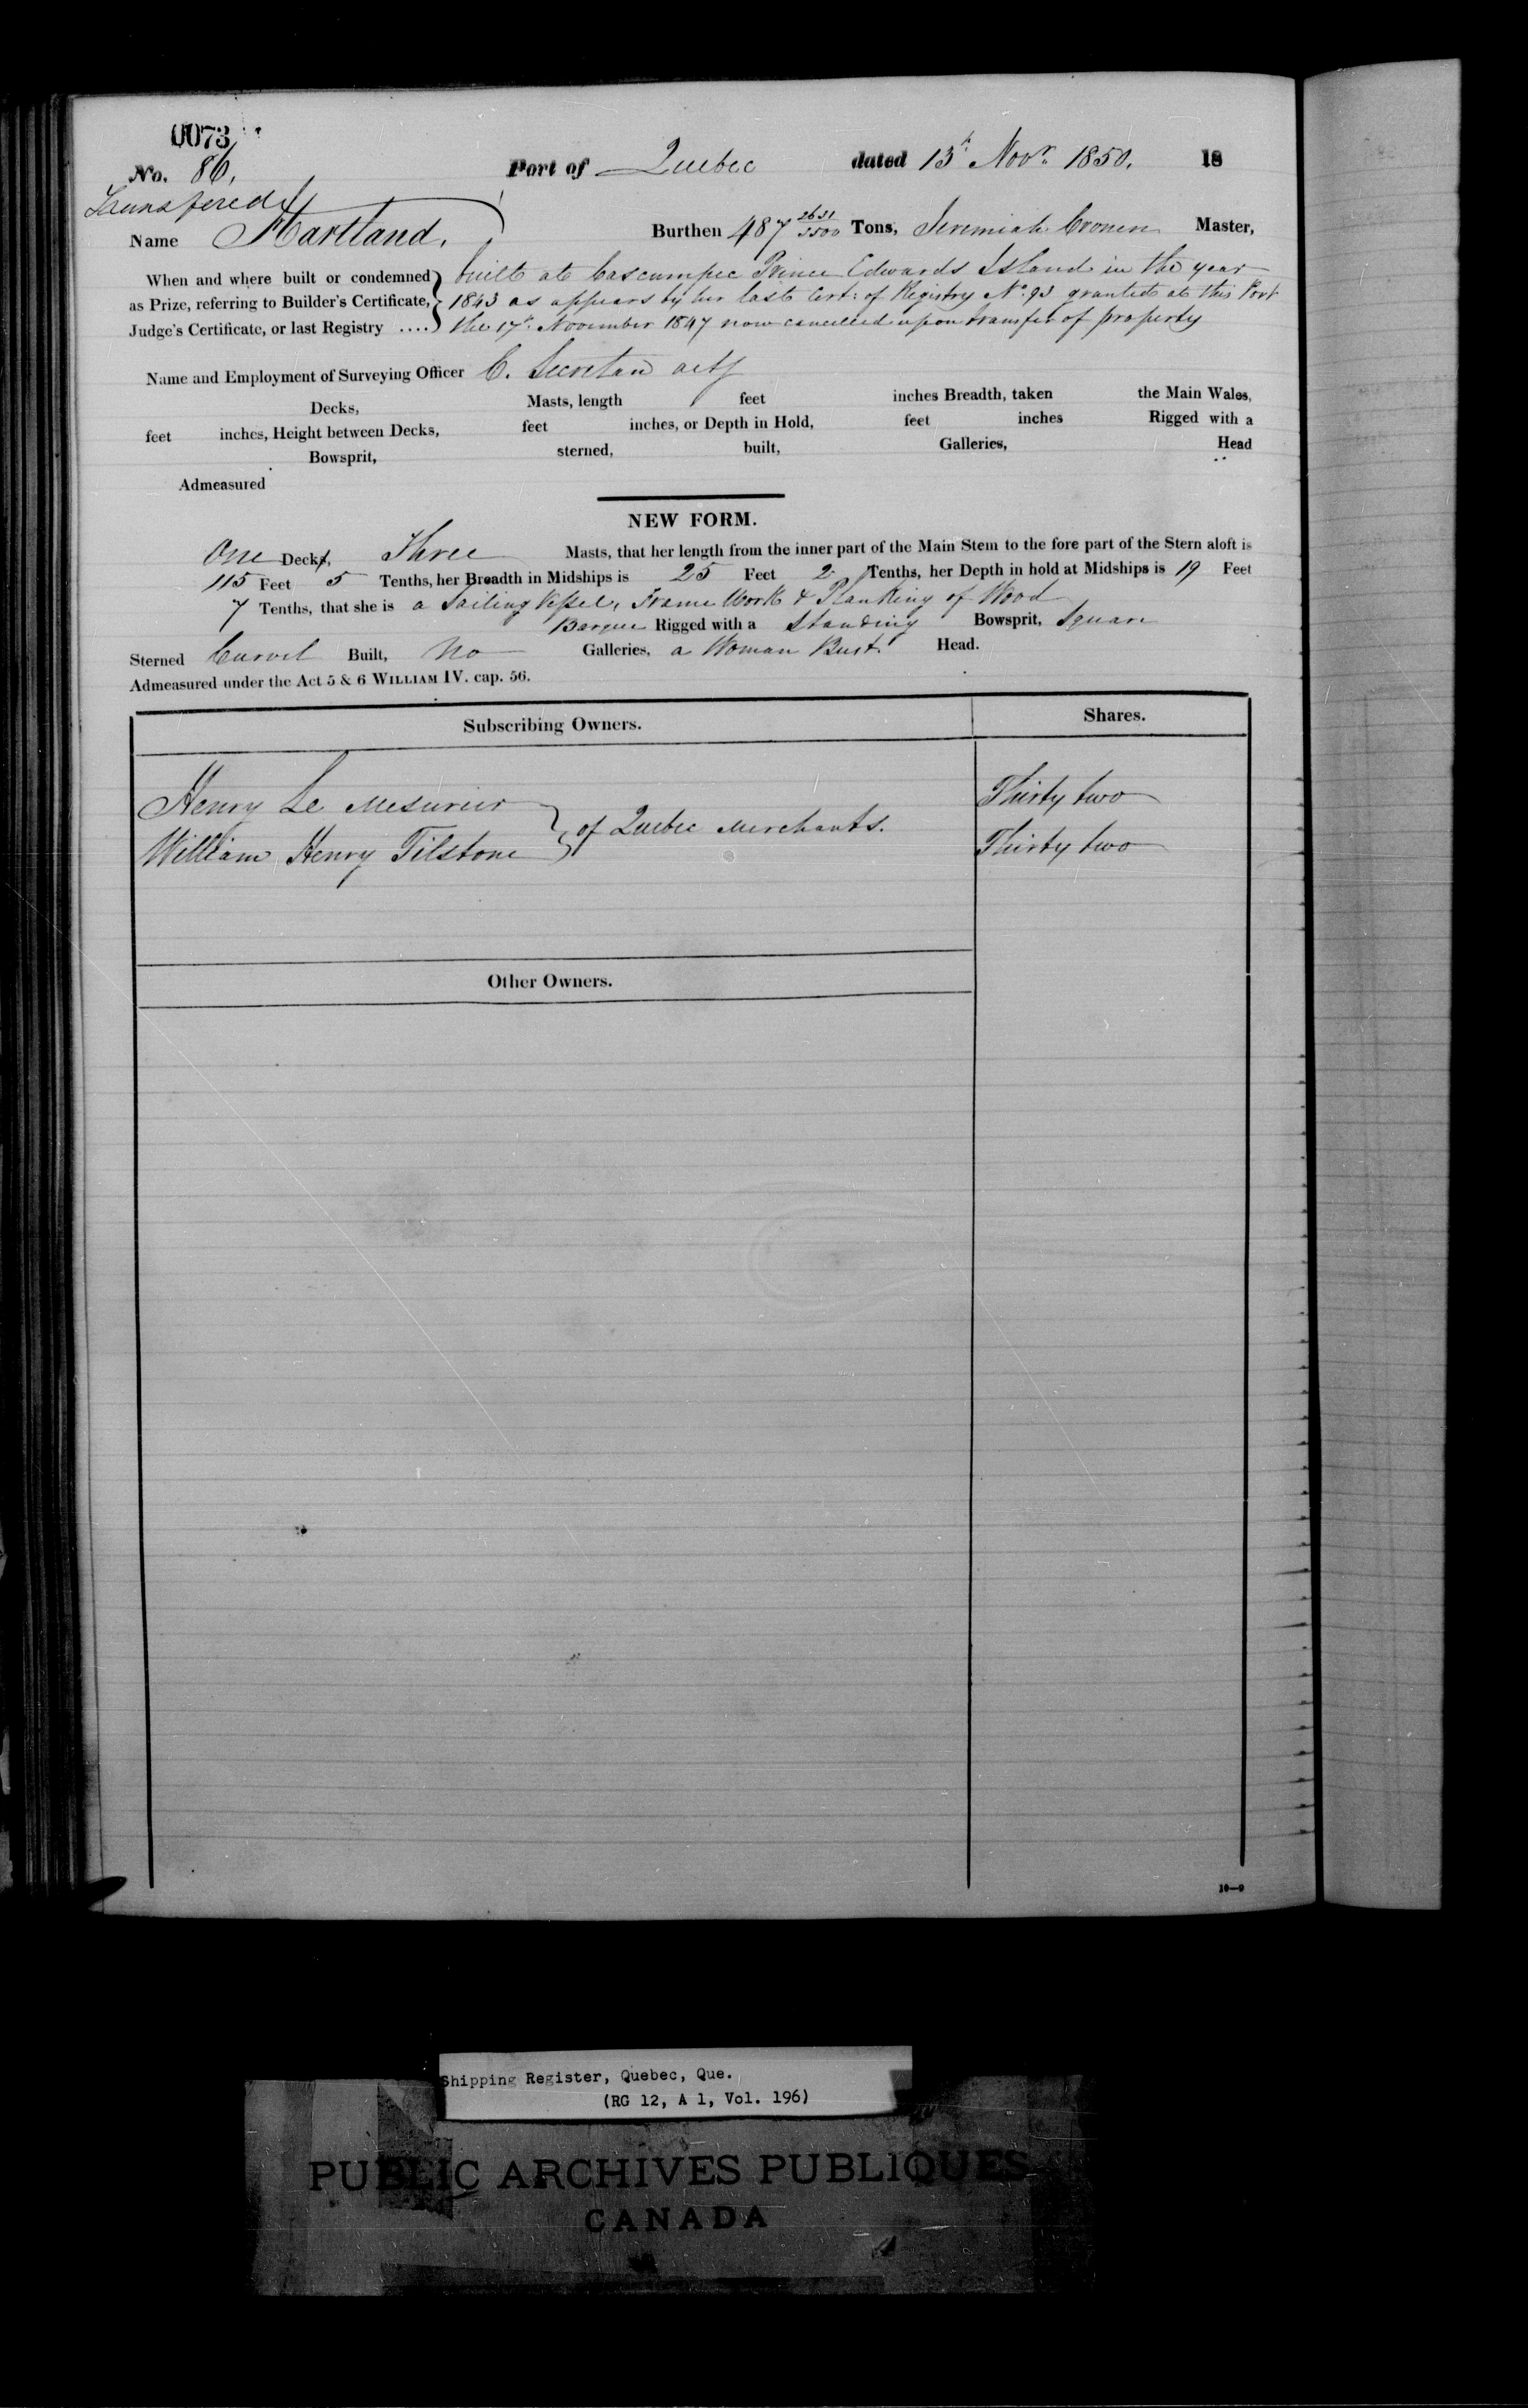 0073
No. 86, Port of Quebec dated 13th Novr. 1850. 18
Transfered
Name Hartland. Burthen 487 2631/3500 Tons, Jeremiah Cronen Master,
When and where built or condemned built at Cascumpec Prince Edwards Island in the year
as Prize, referring to Builder's Certificate, 1843 as appears by her last Cert: of Registry No. 93 granted at this Port
Judge's Certificate, or last Registry .... the 17th November 1847 now cancelled upon transfer of property
Name and Employment of Surveying Officer C. Secretan actg
Decks, Masts, length feet inches Breadth, taken the Main Wales,
feet inches, Height between Decks, feet inches, or Depth in Hold, feet inches Rigged with a
Bowsprit, sterned, built, Galleries, Head
Admeasured
NEW FORM.
One Decks, Three Masts, that her length from the inner part of the Main Stem to the fore part of the Stern aloft is
115 Feet 5 Tenths, her Breadth in Midships is 25 Feet 2 Tenths, her Depth in hold at Midships is 19 Feet
7 Tenths, that she is a Sailing Vessel, Frame Work & Planking of Wood
Barque Rigged with a Standing Bowsprit, Square
Sterned Carvel Built, No Galleries, a Woman Bust Head.
Admeasured under the Act 5 & 6 WILLIAM IV. cap. 56.
Subscribing Owners. Shares.
Henry Le Mesurier Thirty two
of Quebec Merchants.
William Henry Tilstone Thirty two
Other Owners.
10—9
Shipping Register, Quebec, Que.
(RG 12, A 1, Vol. 196)
PUBLIC ARCHIVES PUBLIQUES
CANADA